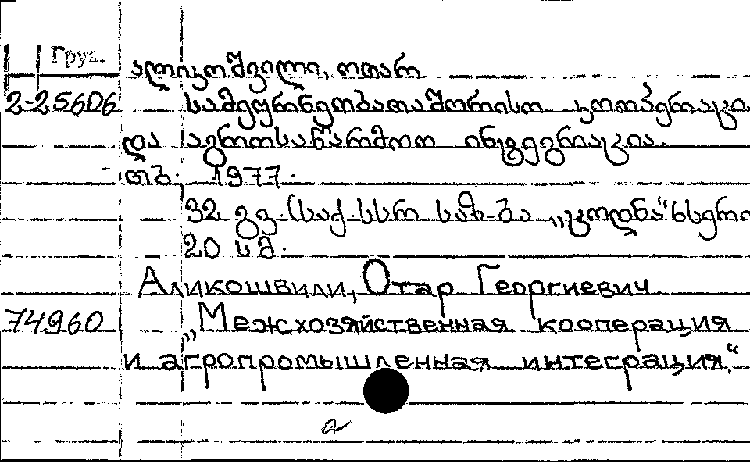 Груз.
ალიკოშვილი, ოთარ
2-25606 სამეურნეობათაშორისო კოოპერაცი
და აგროსამრეწველო ინტეგრაცია.
თბ. 1977.
32 გვ. (საქ. სსრ საზ-ბა „ცოდნა“
20 სმ.
Аликошвили, Отар Георгиевич
74960 „Межхозяйственная кооперация
и агропромышленная интеграция.“
а